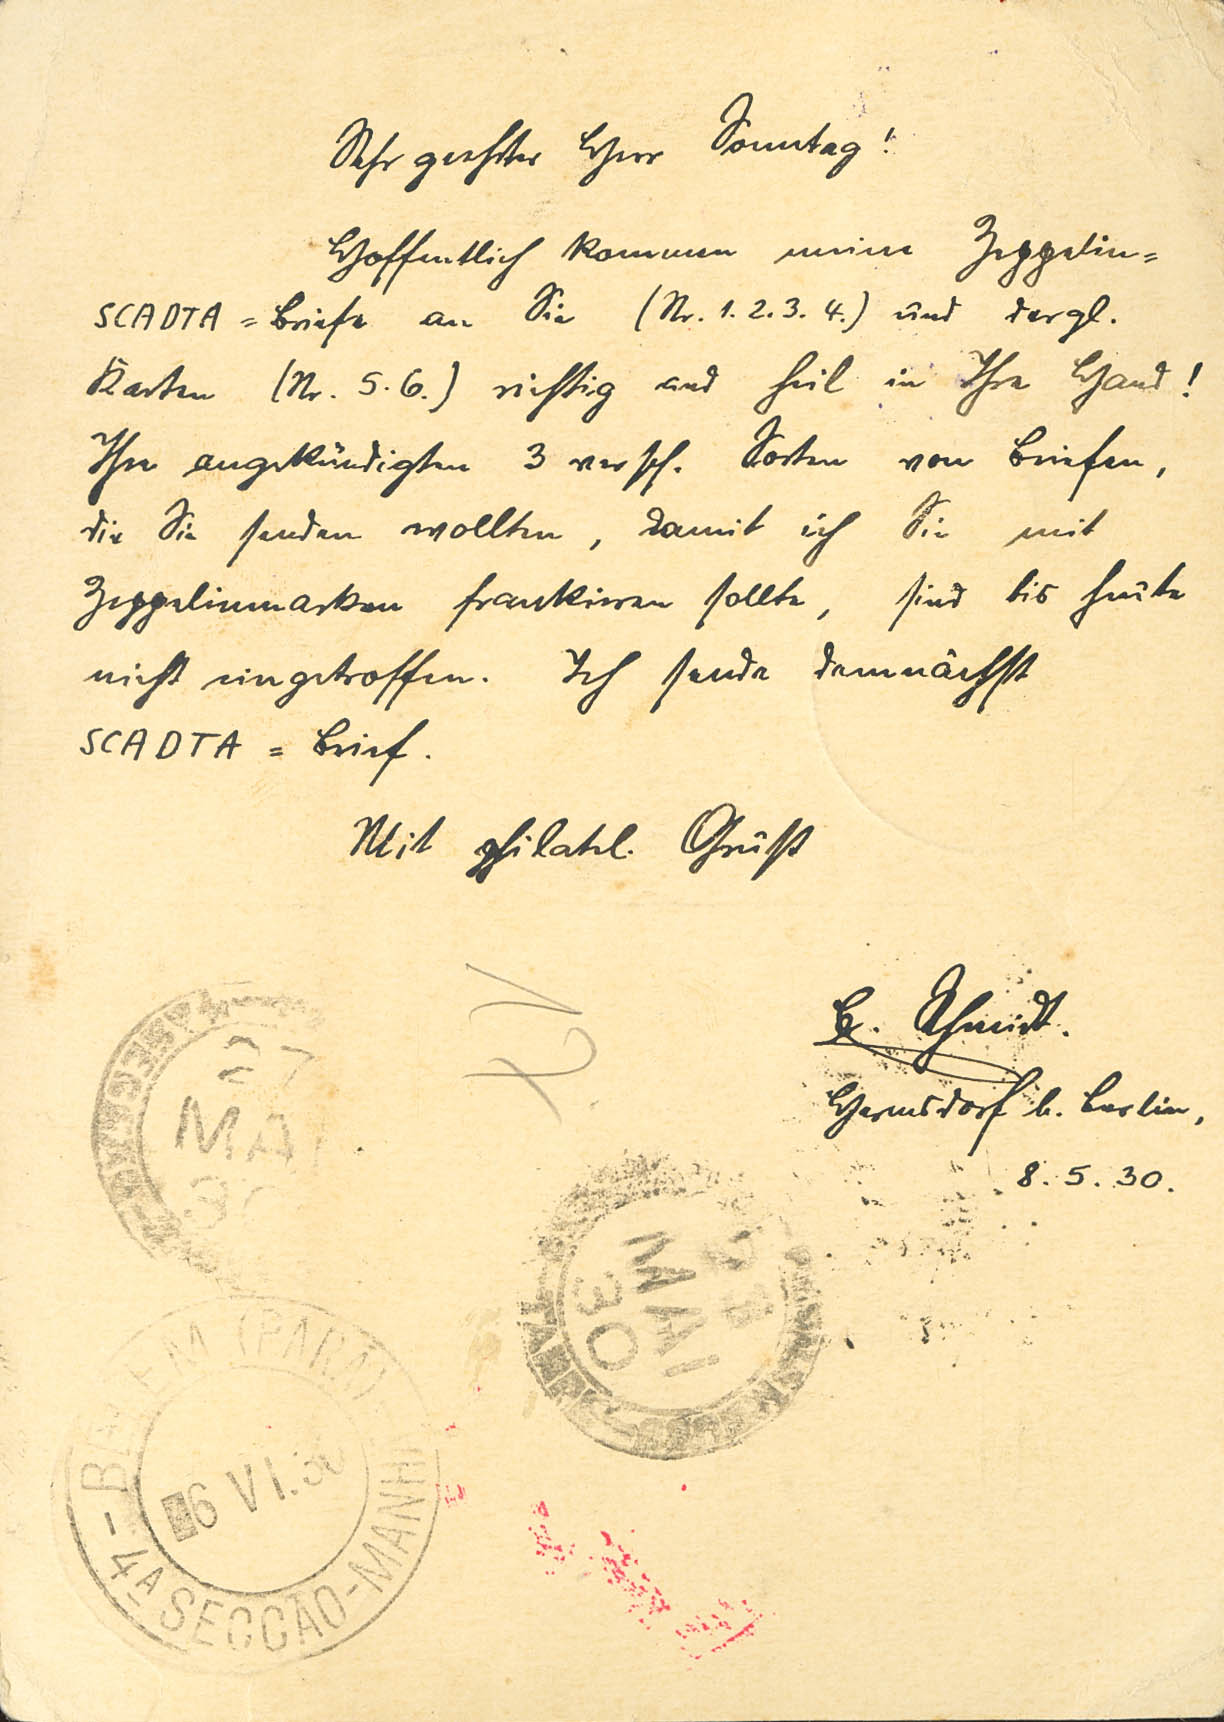 Sehr geehrter Herr Sonntag!
Hoffentlich kommen meine Zeppelin=
SCADTA = Briefe an Sie (Nr. 1. 2. 3. 4.) und dergl.
Karten (Nr. 5. 6.) richtig und heil in Ihre Hand!
Ihre angekündigten 3 versch. Sorten von Briefen,
die Sie senden wollten, damit ich Sie mit
Zeppelinmarken frankieren sollte, sind bis heute
nicht eingetroffen. Ich sende demnächst
SCADTA = Brief.
Mit philatel. Gruß
B. Schmidt.
Hermsdorf b. Berlin,
8. 5. 30.
27
MAI
30
23
MAI
30
BELEM (PARA)
6 VI.30
4A SECCÃO-MANHÃ